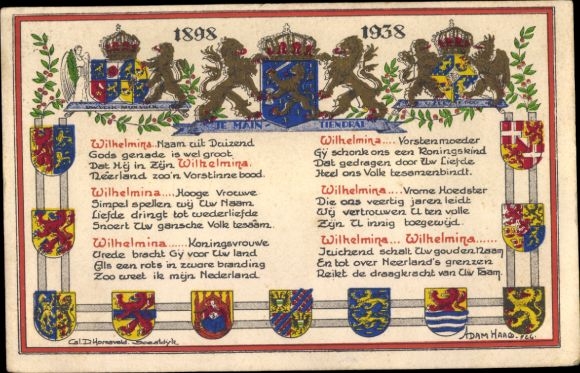 1898
1938
JE MAIN-
TIENDRAI
Wilhelmina...Naam uit Duizend
Gods genade is wel groot
Dat Hij in Zijn Wilhelmina.
Néerland zoo'n Vorstinne bood.
Wilhelmina.....Hooge Vrouwe
Simpel spellen wij Uw Naam
Liefde dringt tot wederliefde
Snoert Uw gansche Volk tesaam.
Wilhelmina.....Koningsvrouwe
Vrede bracht Gÿ voor Uw land
Als een rots in zware branding
Zoo weet ik mijn Nederland.
Wilhelmina....Vorstenmoeder
Gÿ schonk ons een Koningskind
Dat gedragen door Uw Liefde
Heel ons Volk tesamenbindt.
Wilhelmina....Vrome Hoedster
Die ons veertig jaren leidt
Wÿ vertrouwen U ten volle
Zijn U innig toegewijd.
Wilhelmina... Wilhelmina......
Juichend schalt Uw gouden Naam
En tot over Neerland's grenzen
Reikt de draagkracht van Uw Faam.
Col. D. Horneveld. Soestdÿk
ADAM HAAG.